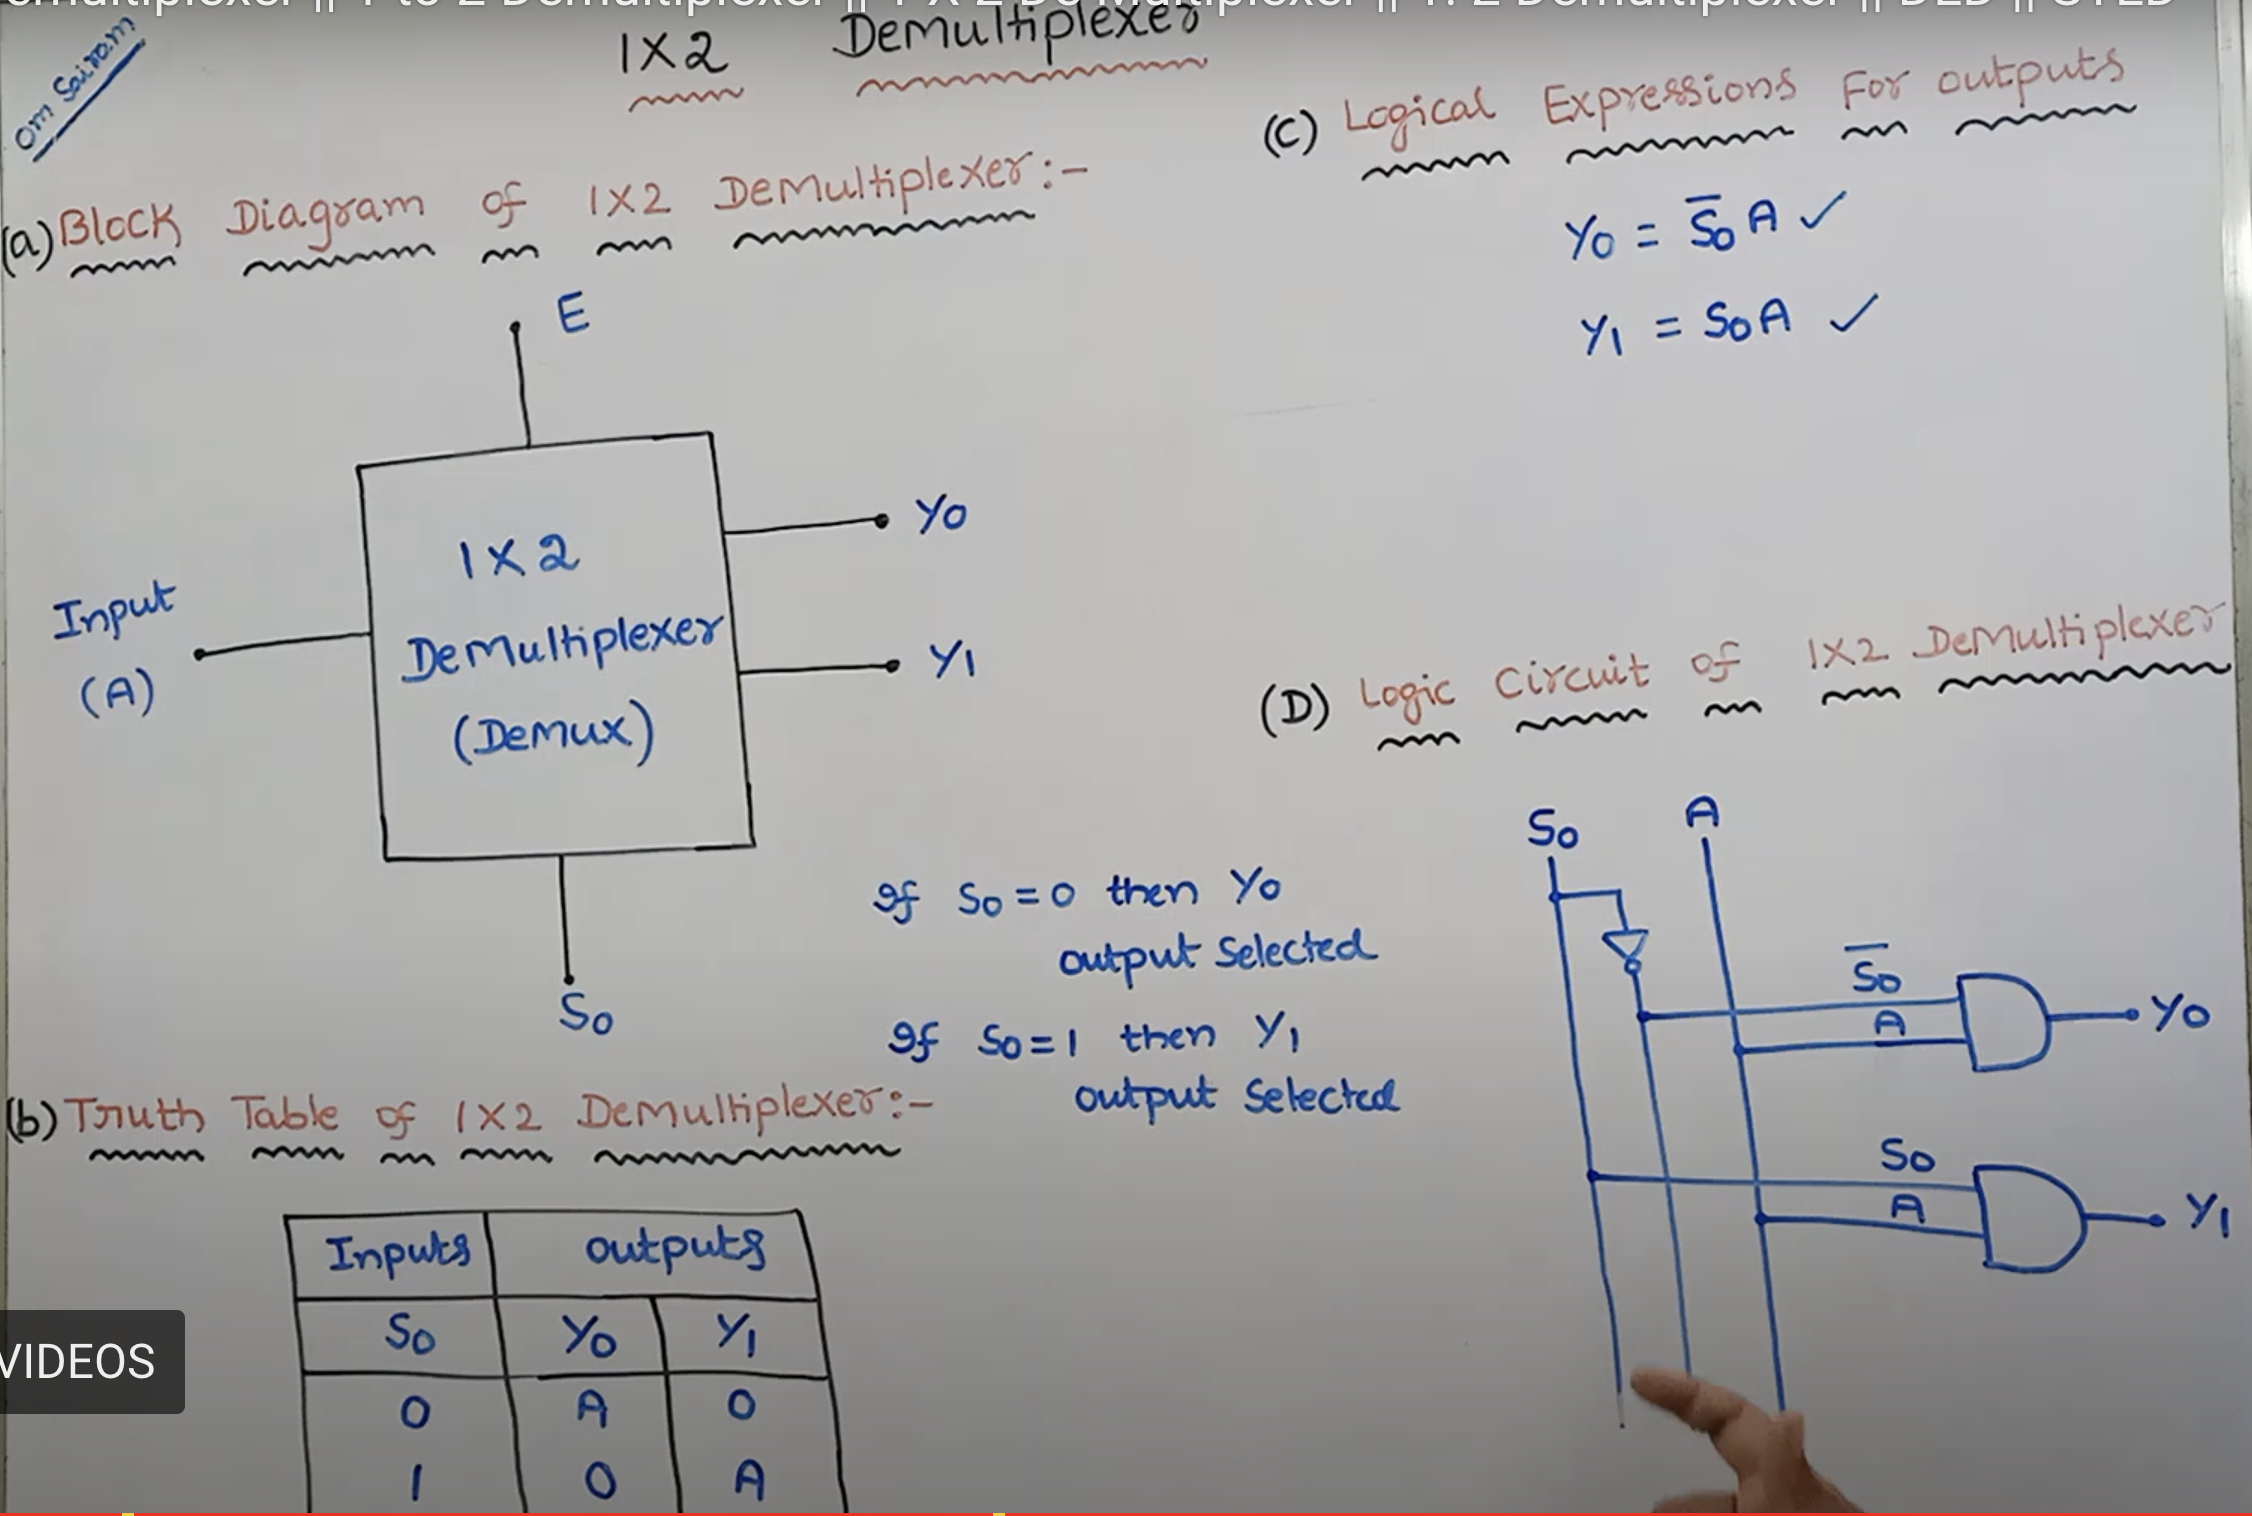 1X2 Demultiplexer
Om Sairam
(a) Block Diagram of 1X2 Demultiplexer:-
E
Input
(A)
1X2
Demultiplexer
(Demux)
Y0
Y1
S0
If S0=0 then Y0
output Selected
If S0=1 then Y1
output Selected
(b) Truth Table of 1X2 Demultiplexer:-
Inputs outputs
S0 Y0 Y1
0 A 0
1 0 A
(C) Logical Expressions For outputs
Y0 = S̅0 A ✓
Y1 = S0 A ✓
(D) Logic Circuit of 1X2 Demultiplexer
S0 A
S̅0
A
Y0
S0
A
Y1
VIDEOS